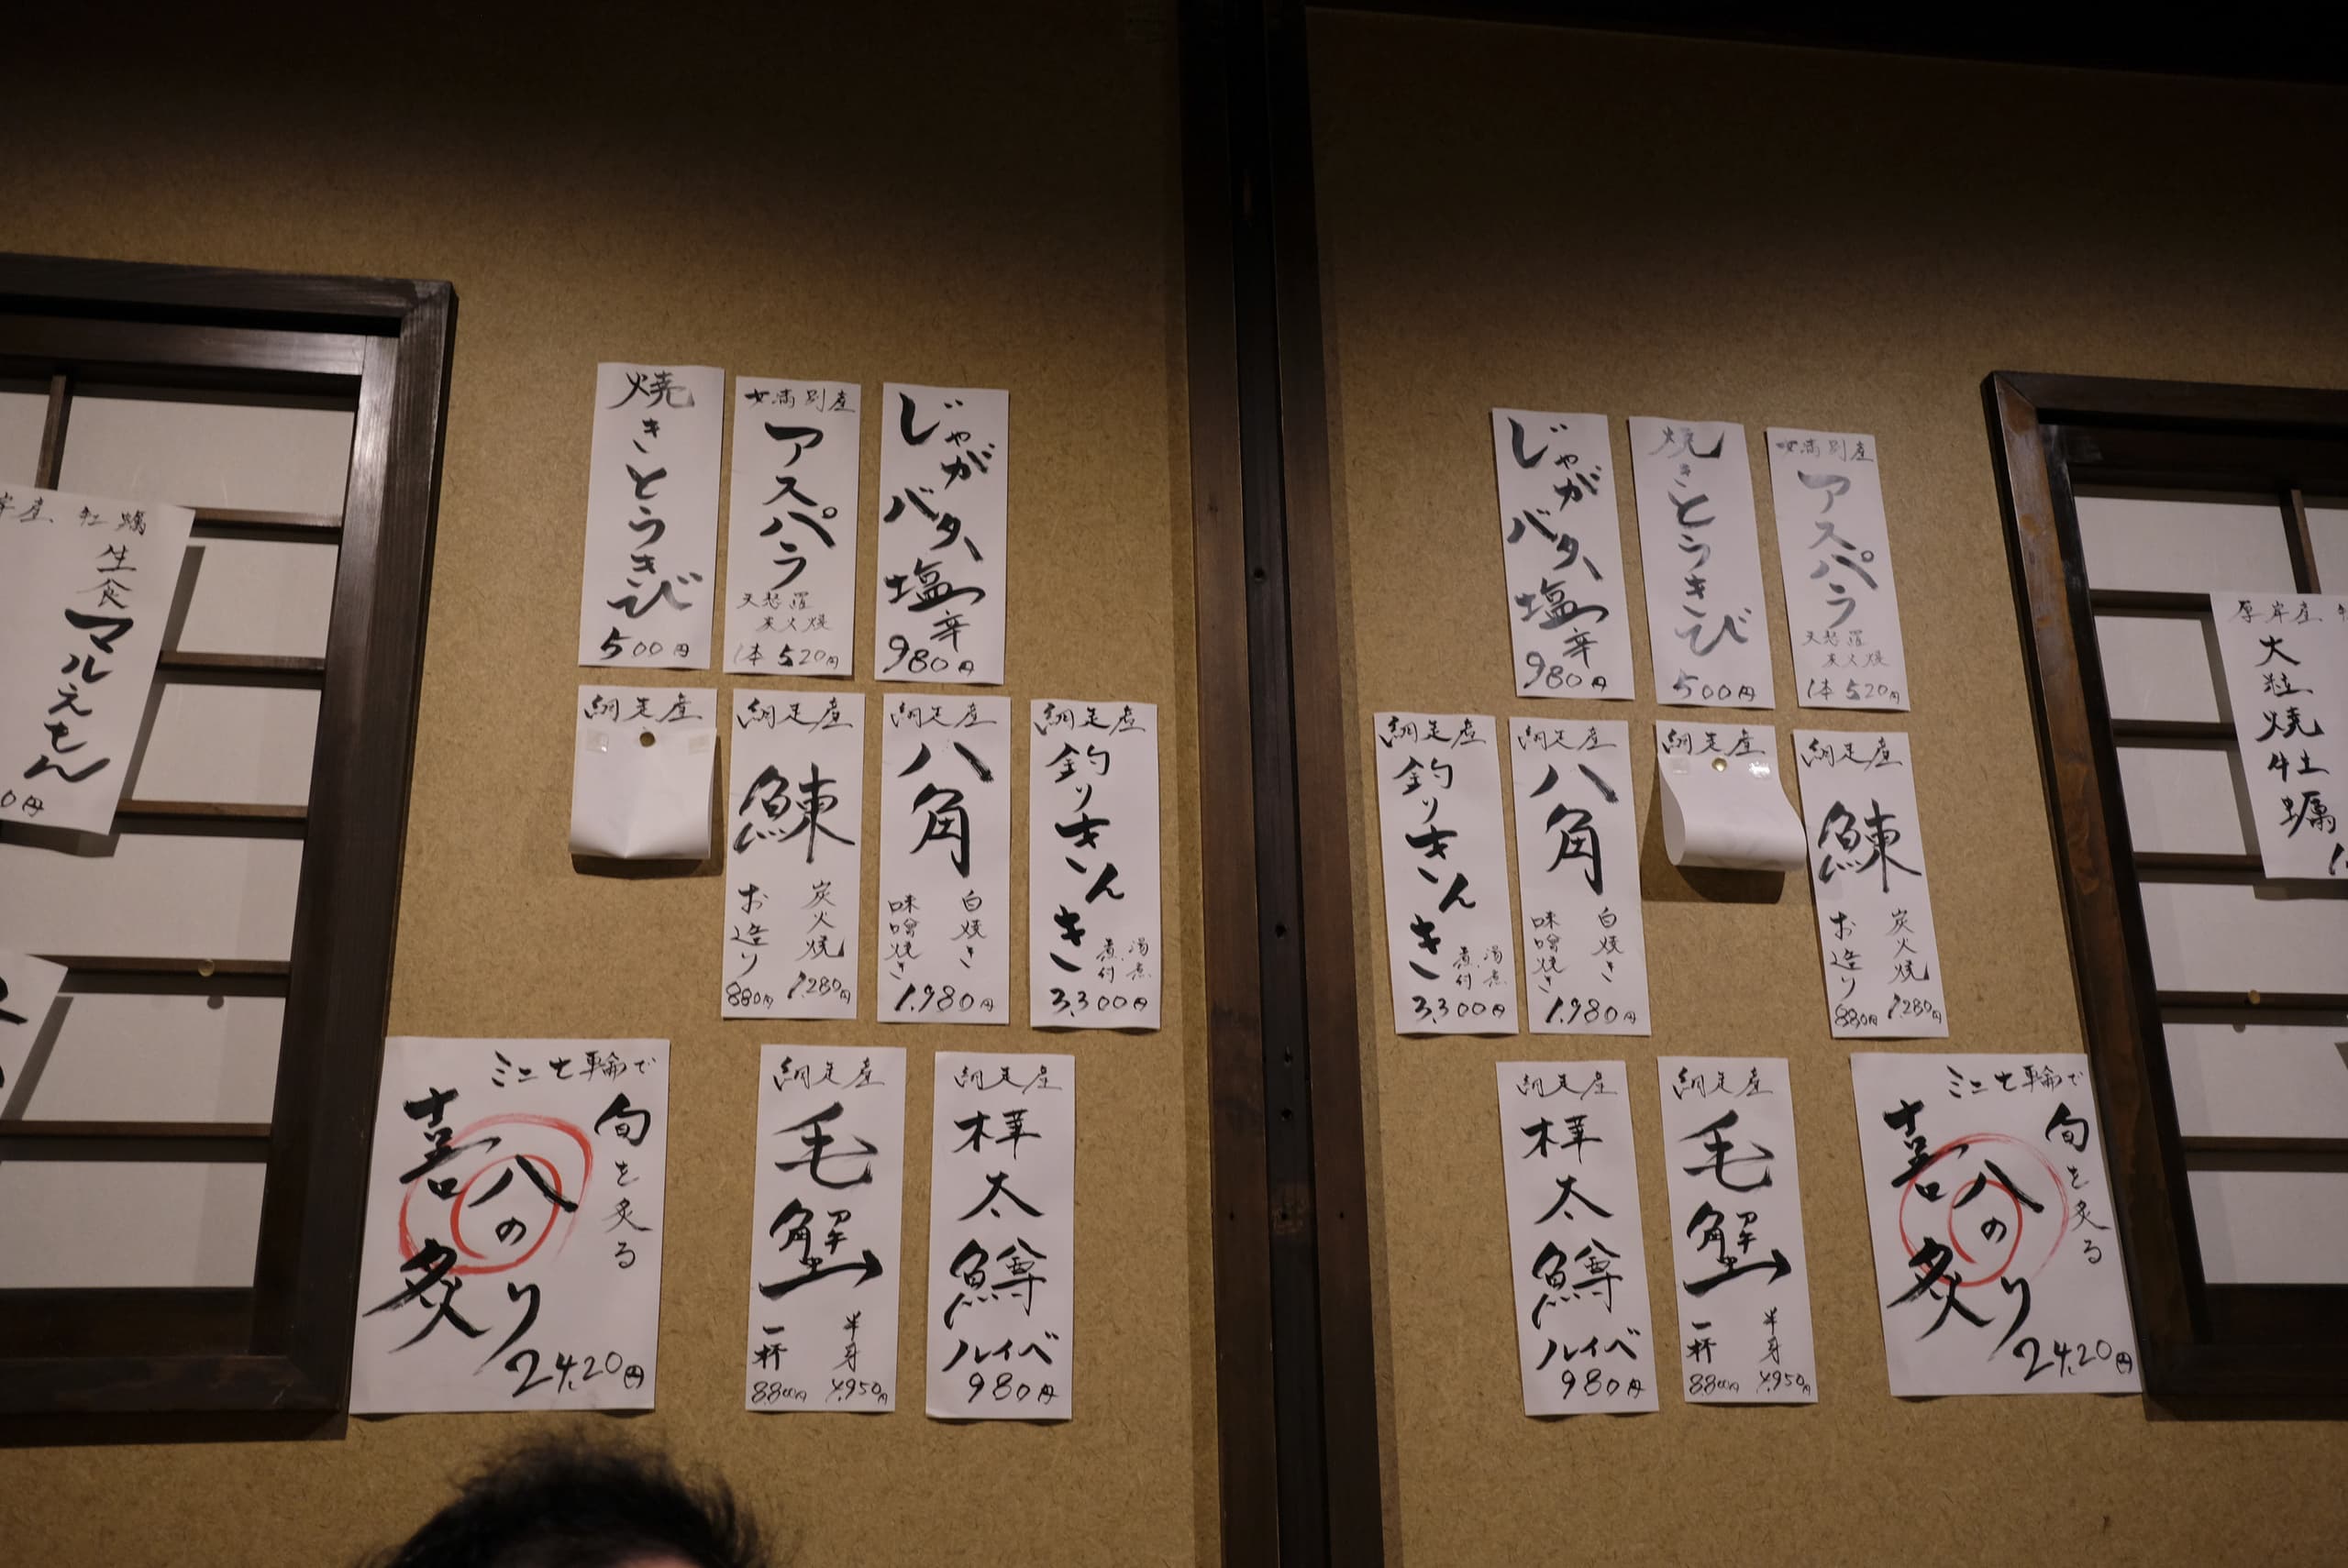 生食
マルえもん
0円
焼きとうきび
500円
女満別産
アスパラ
天麩羅
炭火焼
1本 520円
じゃがバター塩辛
980円
網走産
網走産
鰊
炭火焼 1,280円
お造り 880円
網走産
八角
白焼き
味噌焼き
1,980円
網走産
釣りきんき
湯煮
煮付
3,300円
ミニ七輪で
旬を炙る
喜八の炙り
2,420円
網走産
毛蟹
半身 4,950円
一杯 8,800円
網走産
樺太鱒
ルイベ
980円
じゃがバター塩辛
980円
焼きとうきび
500円
女満別産
アスパラ
天麩羅
炭火焼
1本 520円
網走産
釣りきんき
湯煮
煮付
3,300円
網走産
八角
白焼き
味噌焼き
1,980円
網走産
網走産
鰊
炭火焼 1,280円
お造り 880円
網走産
樺太鱒
ルイベ
980円
網走産
毛蟹
半身 4,950円
一杯 8,800円
ミニ七輪で
旬を炙る
喜八の炙り
2,420円
厚岸産
大粒焼牡蠣